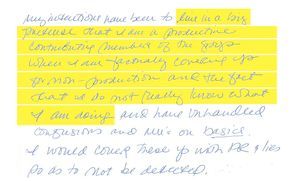 My intentions have been to live in a big
pretense that I am a productive
contributing member of the group
when I am factually covering up
for non-production and the fact
that I do not really know what
I am doing and have unhandled
confusions and MU's on basics.
I would cover these up with PR & lies
so as to not be detected.